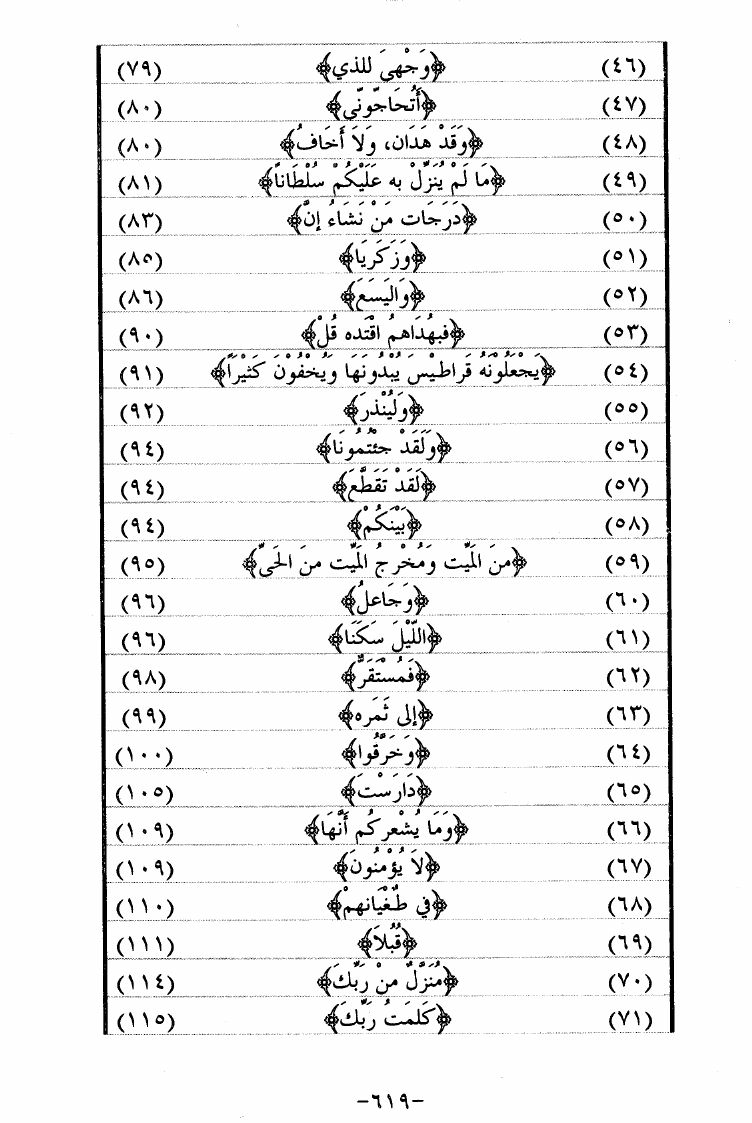 (٤٦) ﴿وَجْهيَ للذي﴾ (٧٩)
(٤٧) ﴿أَتُحَاجّونّي﴾ (٨٠)
(٤٨) ﴿وَقَدْ هَدَان، وَلاَ أَخَافُ﴾ (٨٠)
(٤٩) ﴿مَا لَمْ يُنَزِّلْ به عَلَيْكُمْ سُلْطَاناً﴾ (٨١)
(٥٠) ﴿دَرَجَات مَنْ نَشَاءُ إنَّ﴾ (٨٣)
(٥١) ﴿وَزَكَريَا﴾ (٨٥)
(٥٢) ﴿وَاليَسَعَ﴾ (٨٦)
(٥٣) ﴿فَبهُدَاهمُ اقْتَده قُلْ﴾ (٩٠)
(٥٤) ﴿يَجْعَلُوْنَهُ قَراطيْسَ يُبْدُونَهَا وَيُخْفُوْنَ كَثيْرَاً﴾ (٩١)
(٥٥) ﴿وَلُيُنْذرَ﴾ (٩٢)
(٥٦) ﴿وَلَقَدْ جئْتُمُونَا﴾ (٩٤)
(٥٧) ﴿لَقَدْ تَقَطَّعَ﴾ (٩٤)
(٥٨) ﴿بَيْنَكُمْ﴾ (٩٤)
(٥٩) ﴿منَ المَيِّت وَمُخْرجُ المَيِّت منَ الحَيِّ﴾ (٩٥)
(٦٠) ﴿وَجَاعلُ﴾ (٩٦)
(٦١) ﴿اللّيْلَ سَكَنَا﴾ (٩٦)
(٦٢) ﴿فَمُسْتَقَرٌّ﴾ (٩٨)
(٦٣) ﴿إلى ثَمَره﴾ (٩٩)
(٦٤) ﴿وَخَرَّقُوا﴾ (١٠٠)
(٦٥) ﴿دَارَسْتَ﴾ (١٠٥)
(٦٦) ﴿وَمَا يُشْعركُم أَنَّهَا﴾ (١٠٩)
(٦٧) ﴿لاَ يُؤْمنُونَ﴾ (١٠٩)
(٦٨) ﴿في طُغْيَانهمْ﴾ (١١٠)
(٦٩) ﴿قُبُلاً﴾ (١١١)
(٧٠) ﴿مُنَزَّلٌ منْ رَبِّكَ﴾ (١١٤)
(٧١) ﴿كَلمَتُ رَبِّكَ﴾ (١١٥)
-٦١٩-